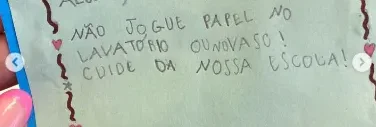 NÃO JOGUE PAPEL NO
LAVATÓRIO OUNOVASO!
CUIDE DA NOSSA ESCOLA!